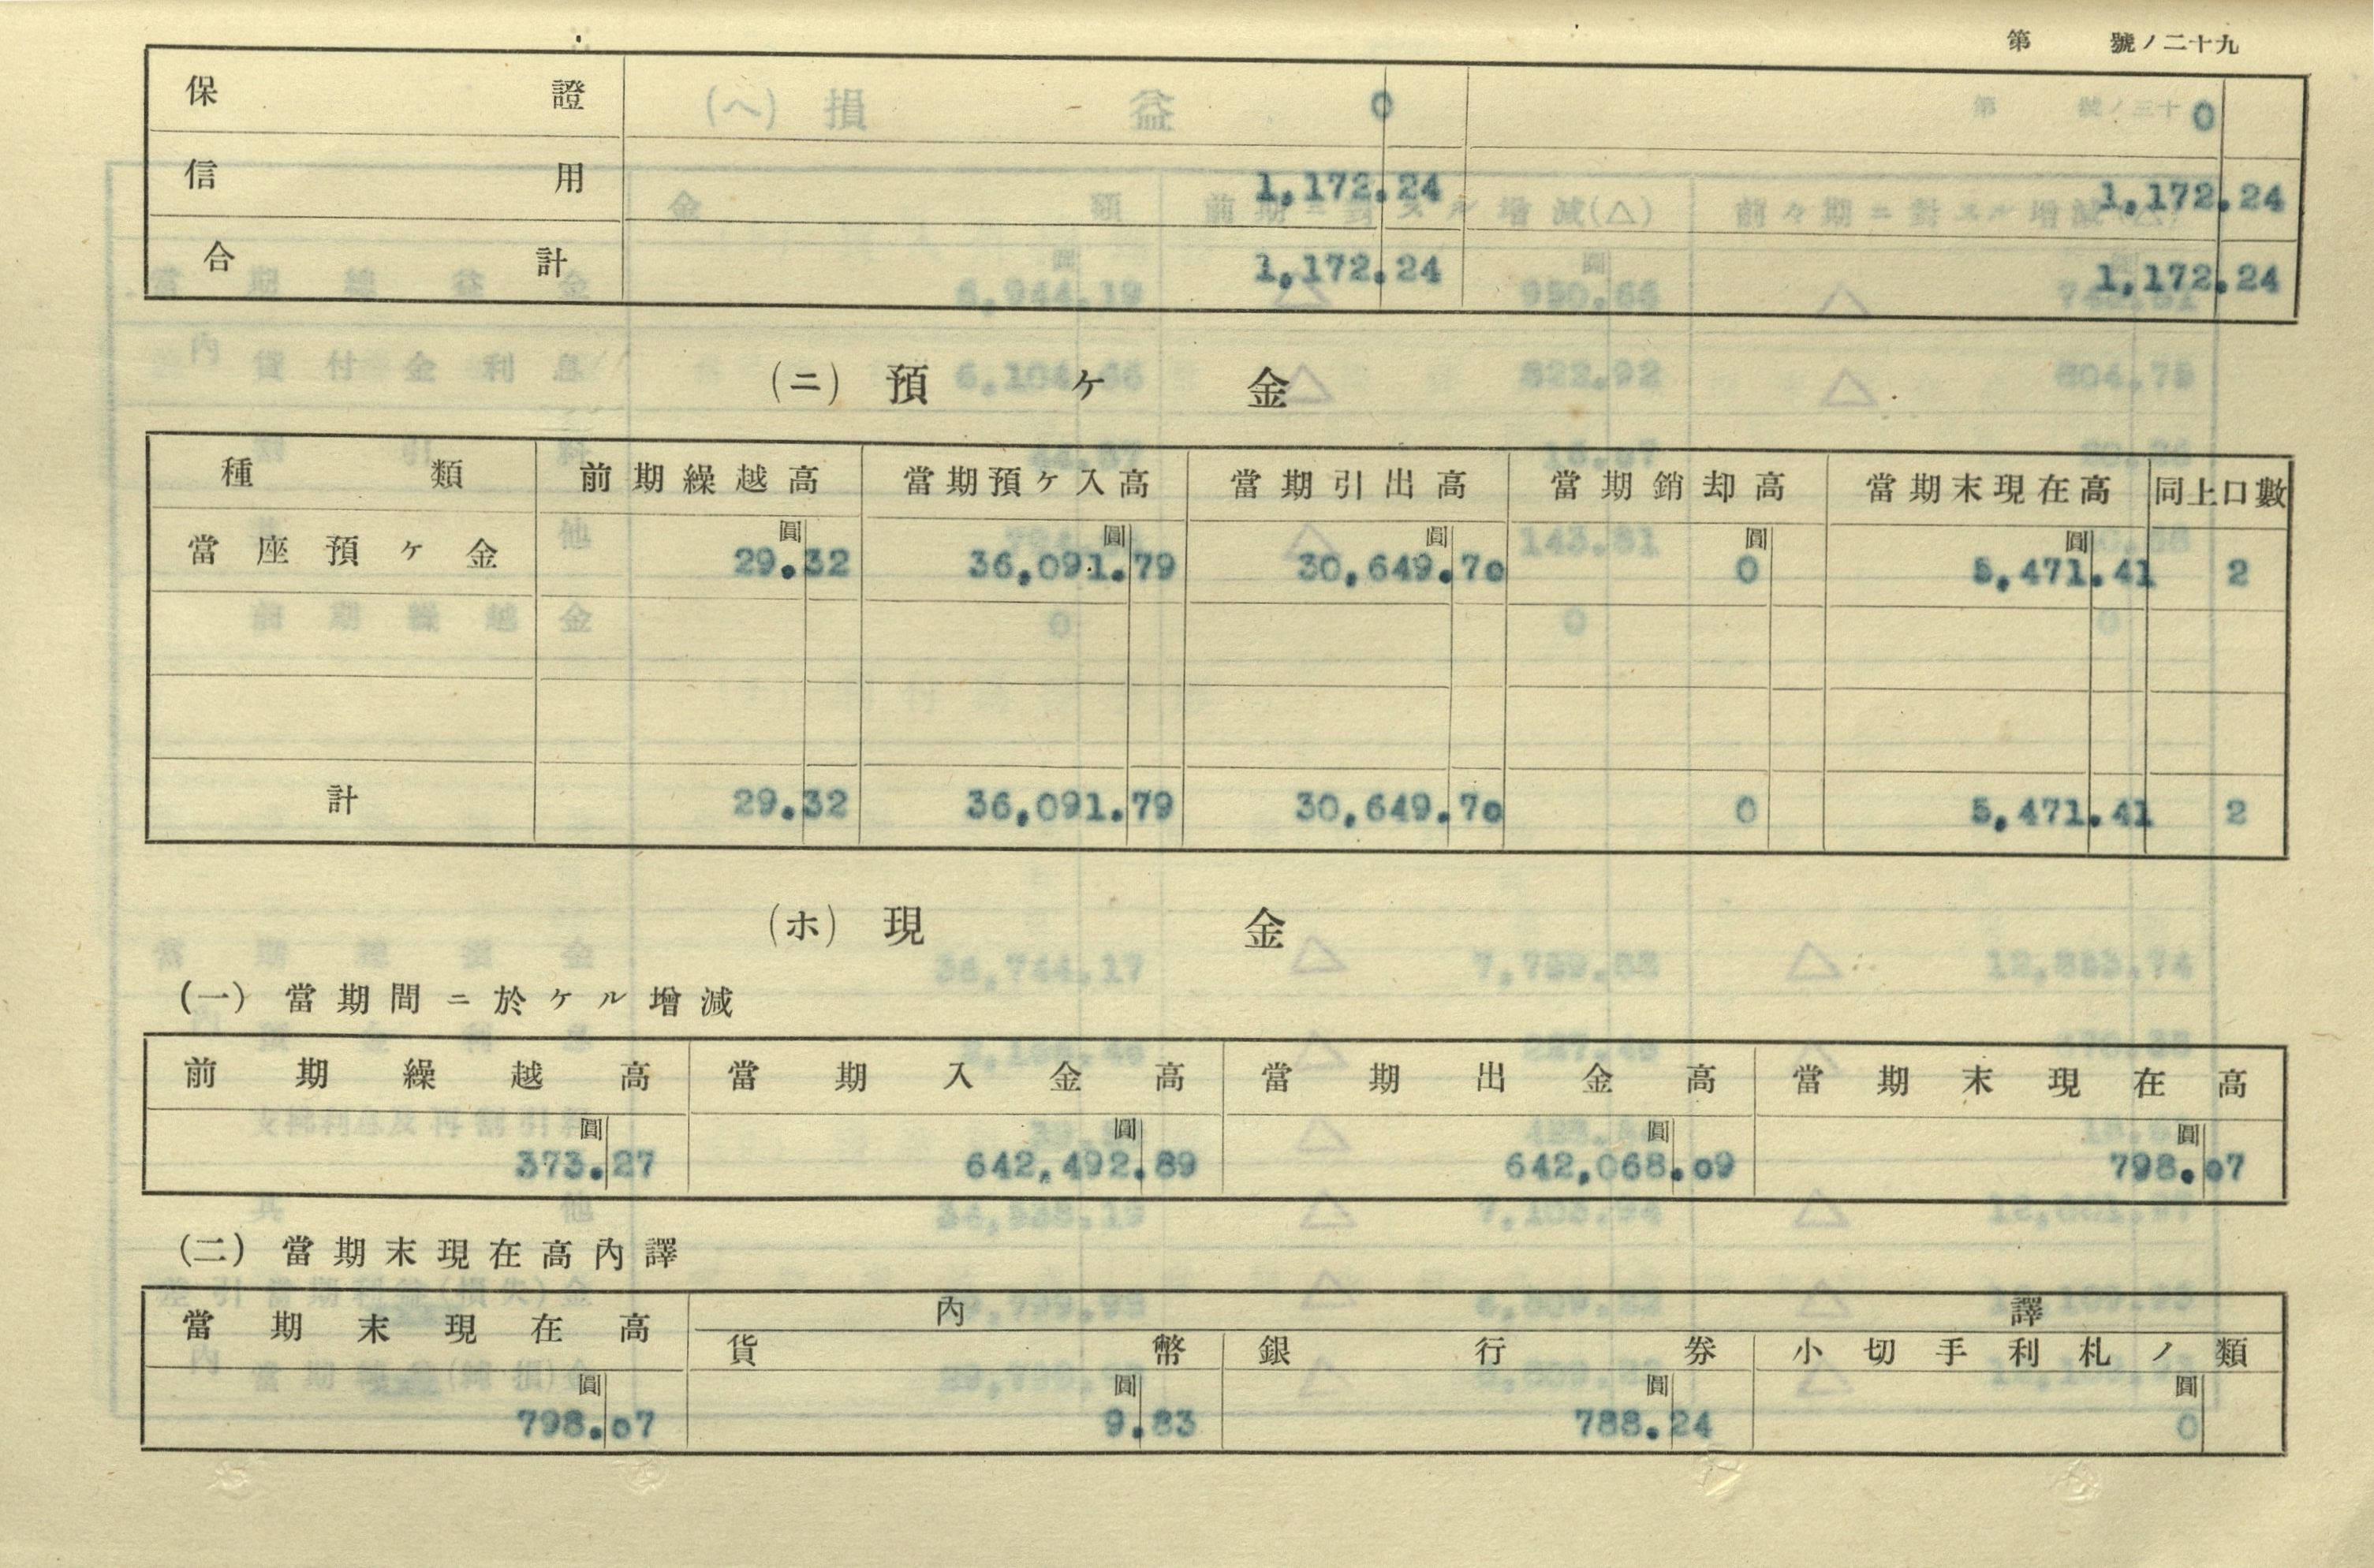 第 號ノ二十九
保證 0 0
信用 1,172.24 1,172.24
合計 1,172.24 1,172.24
(ニ) 預ケ金
種類 前期繰越高 當期預ケ入高 當期引出高 當期銷却高 當期末現在高 同上口數
圓 圓 圓 圓 圓
當座預ケ金 29.32 36,091.79 30,649.70 0 5,471.41 2
計 29.32 36,091.79 30,649.70 0 5,471.41 2
(ホ) 現金
(一) 當期間ニ於ケル增減
前期繰越高 當期入金高 當期出金高 當期末現在高
圓 圓 圓 圓
373.27 642,492.89 642,068.09 798.07
(二) 當期末現在高內譯
當期末現在高 內譯
貨幣 銀行券 小切手利札ノ類
圓 圓 圓 圓
798.07 9.83 788.24 0